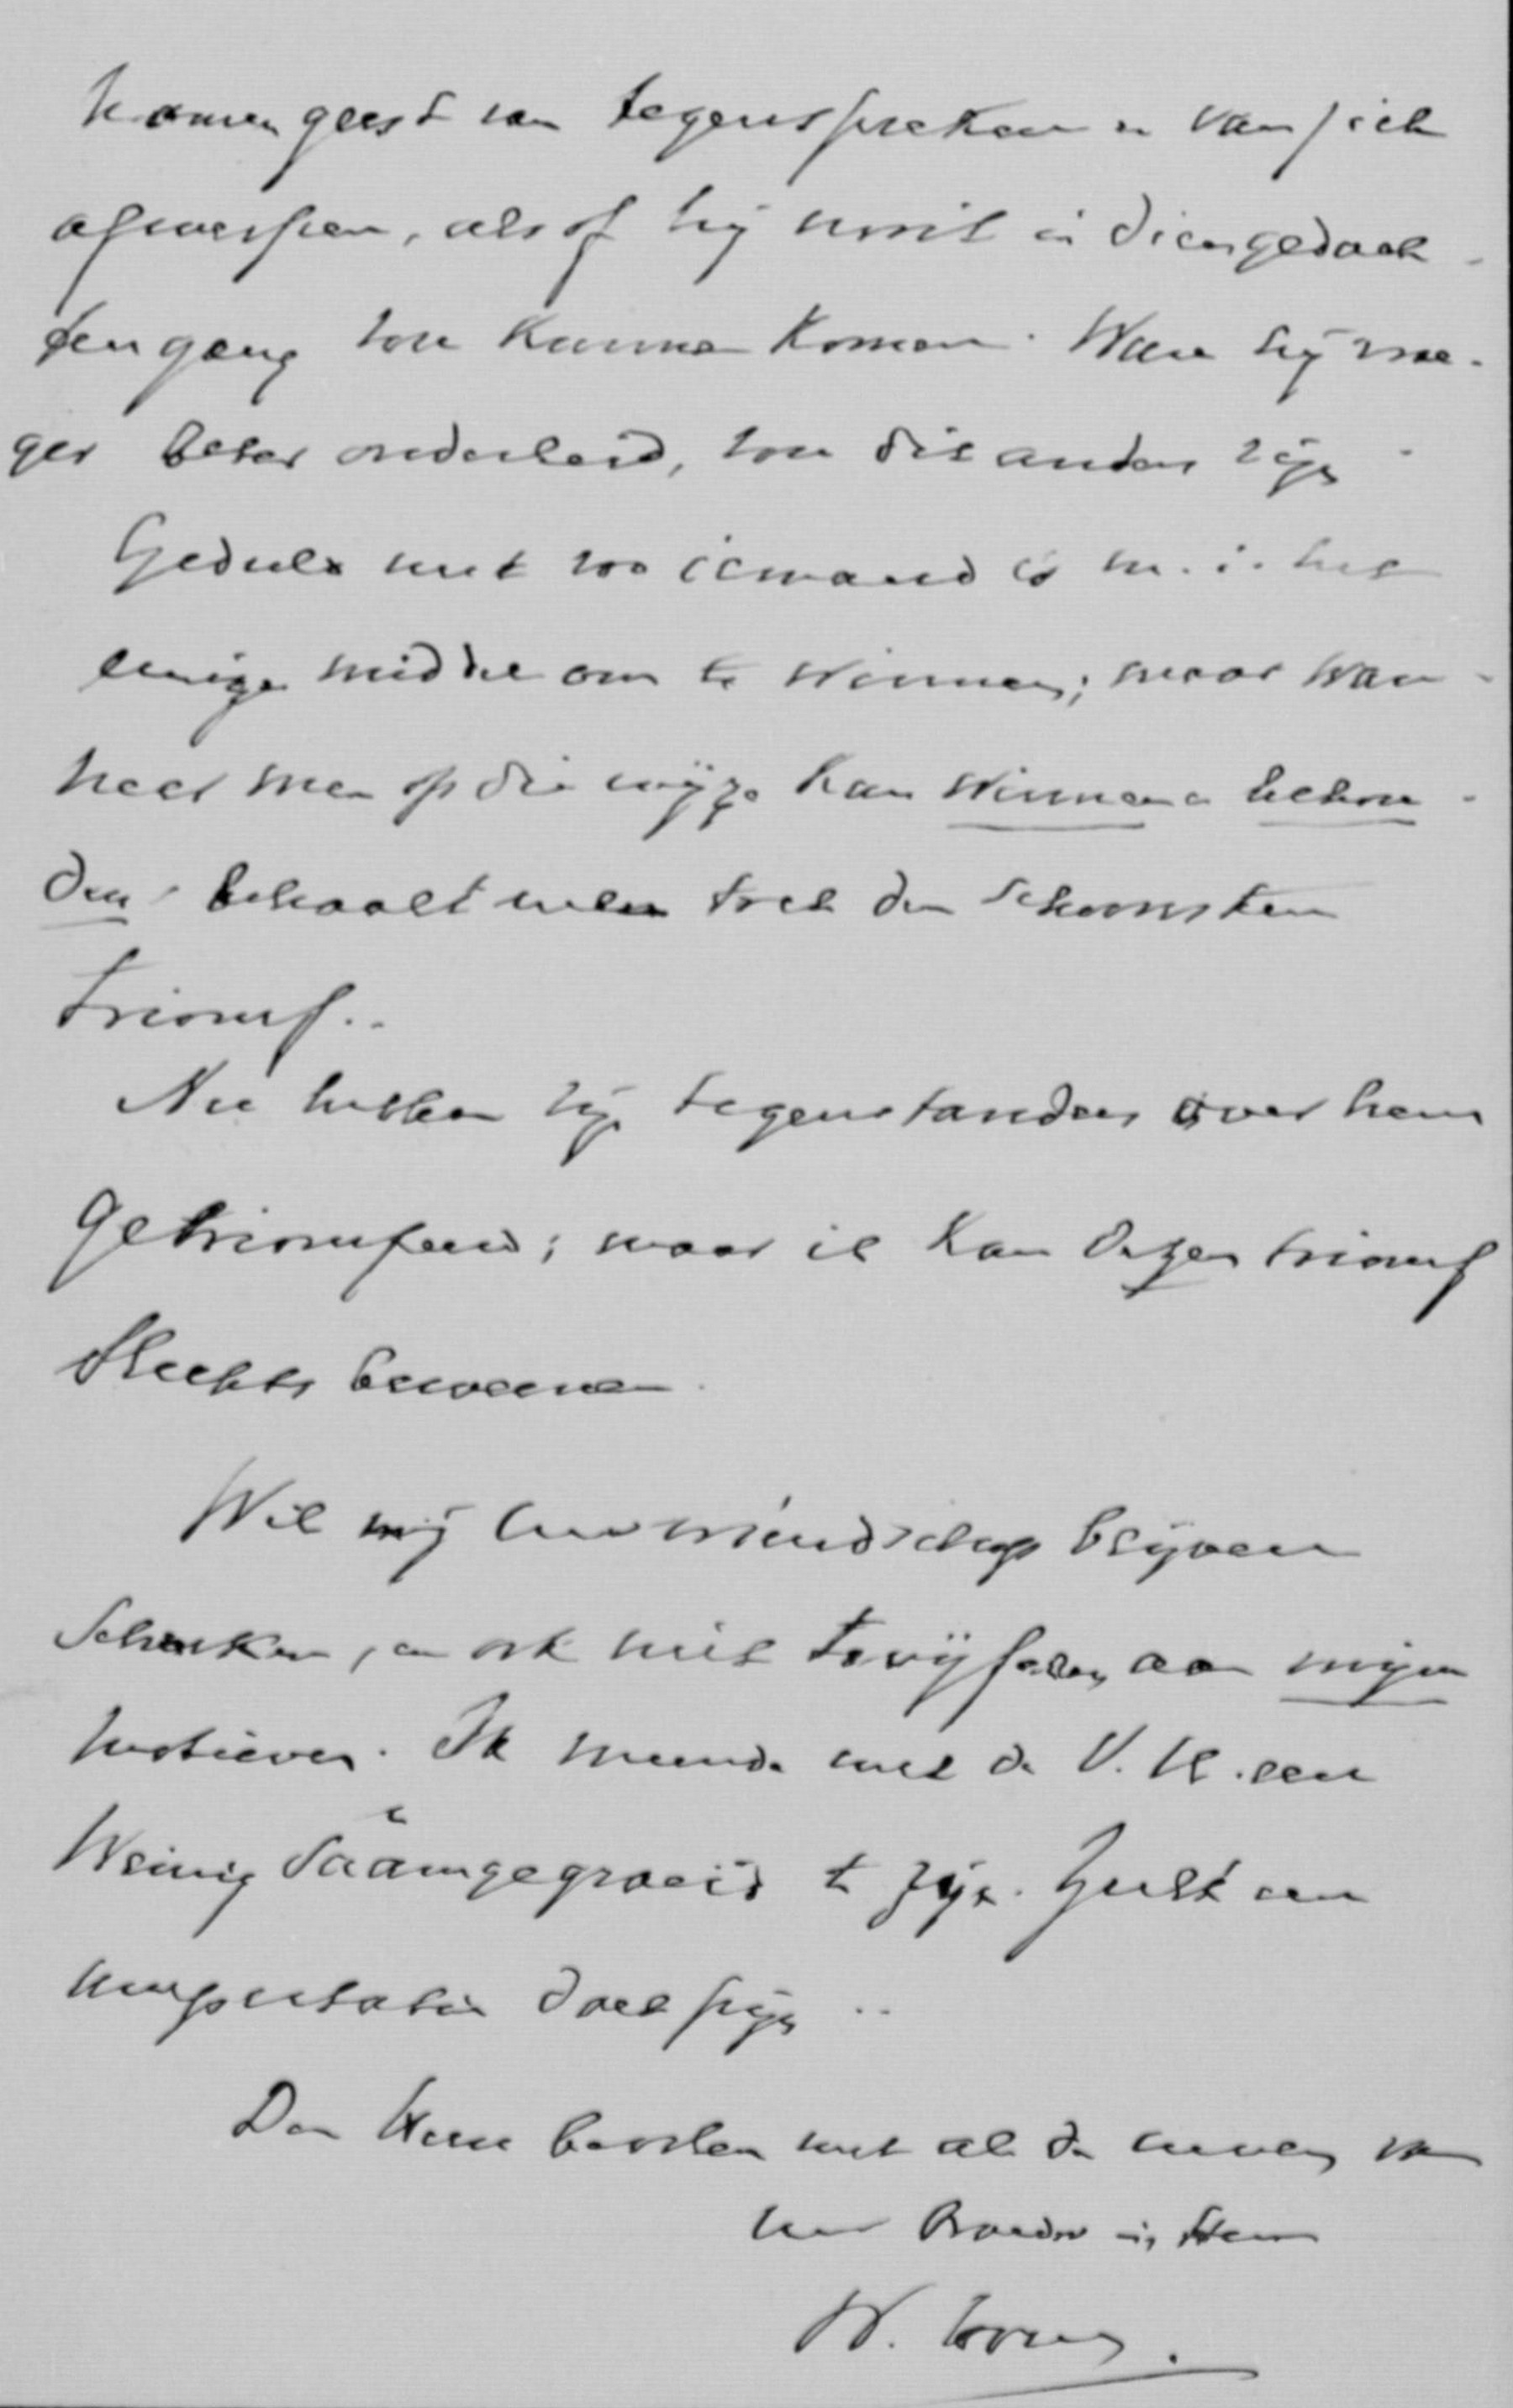 komen geest van tegenspreken en van zich
afwerpen, alsof hij nooit in dien gedach-
tengang zou kunnen komen. Ware hij vroe-
ger beter onderleid, zou dit anders zijn.
Geduld met zoo iemand is m. i. het
eenige middel om te winnen; maar wan-
neer men op die wijze kan winnen en behou-
den, behaalt men toch den schoonsten
triomf..
Nu hebben zijn tegenstanders over hem
getriomfeerd; maar ik kan dezen triomf
slechts beweenen.
Wil mij Uw vriendschap blijven
schenken, en ook niet twijfelen aan mijn
motieven. Ik meende met de V. U. een
weinig saâmgegroeid te zijn. Juist een
amputatie doet pijn..
Den Heere bevolen met al de uwen van
Uw Broeder in Hem
W.